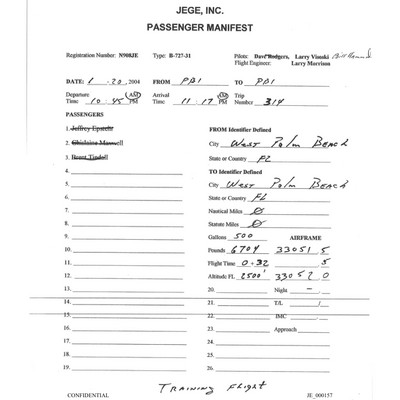 JEGE, INC.
PASSENGER MANIFEST
Registration Number: N908JE Type: B-727-31 Pilots: Dave Rodgers, Larry Visoski Bill Hammond
Flight Engineer: Larry Morrison
DATE: 1-20, 2004 FROM PBI TO PBI
Departure AM Arrival AM Trip
Time: 10:45 PM Time: 11:17 PM Number 314
PASSENGERS
1. Jeffrey Epstein FROM Identifier Defined
2. Ghislaine Maxwell City West Palm Beach
3. Brent Tindall State or Country FL
4. TO Identifier Defined
5. City West Palm Beach
6. State or Country FL
7. Nautical Miles 0
8. Statute Miles 0
9. Gallons 500 AIRFRAME
10. Pounds 6704 33051.5
11. Flight Time 0+32 .5
12. Altitude FL 2500' 33052.0
13. 20. Night -
14. 21. T/L /
15. 22. IMC /
16. 23. Approach
17. 24.
18. 25.
19. 26.
Training Flight
CONFIDENTIAL JE_000157